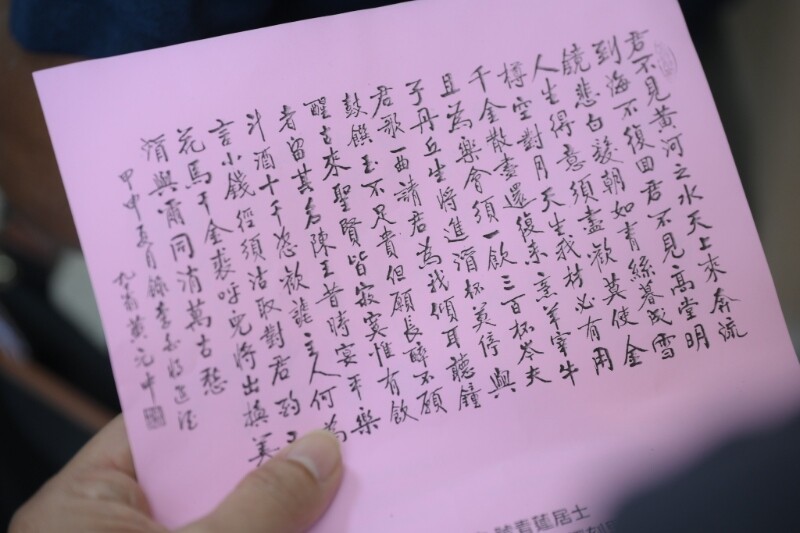 君不見黃河之水天上來奔流
到海不復回君不見高堂明
鏡悲白髮朝如青絲暮成雪
人生得意須盡歡莫使金
樽空對月天生我材必有用
千金散盡還復來烹羊宰牛
且為樂會須一飲三百杯岑夫
子丹丘生將進酒杯莫停與
君歌一曲請君為我傾耳聽鐘
鼓饌玉不足貴但願長醉不願
醒古來聖賢皆寂寞惟有飲
者留其名陳王昔時宴平樂
斗酒十千恣歡謔主人何為
言小錢徑須沽取對君酌
花馬千金裘呼兒將出換美
酒與爾同消萬古愁
甲申夏月錄李白將進酒
青蓮居士